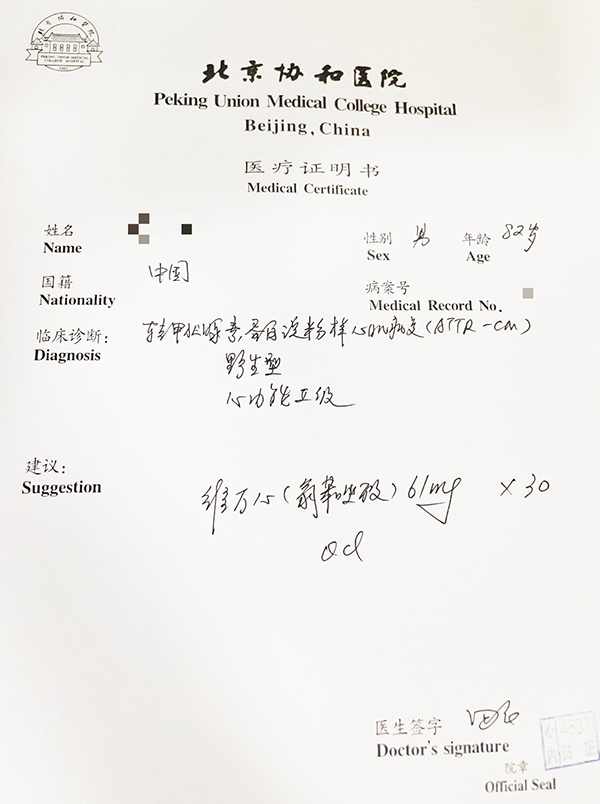 北京协和医院
PEKING UNION MEDICAL COLLEGE HOSPITAL
1921
北京协和医院
Peking Union Medical College Hospital
Beijing, China
医疗证明书
Medical Certificate
姓名
Name
性别 男 年龄 82岁
Sex Age
国籍 中国
Nationality
病案号
Medical Record No.
临床诊断: 转甲状腺素蛋白淀粉样心肌病变(ATTR-CM)
Diagnosis
野生型
心功能Ⅱ级
建议:
Suggestion
维万心(氯苯唑酸) 61mg ×30
Qd
医生签字
Doctor's signature
院章
Official Seal
心 4537
内 田 庄